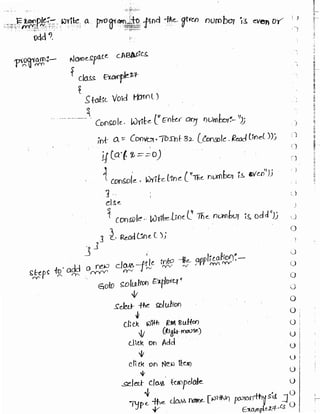 Example:- write a program to find the given number is even or
odd?
program:- Namespace cABASICS
{
class Example27
{
Static Void Main( )
{
Console. Write ("Enter any number:- ");
int a = Convert. ToInt 32. (Console. ReadLine( ));
if (a % 2 = = 0)
{
Console. WriteLine ("The number is even");
}
else
{
Console. WriteLine (" The number is odd");
} C. ReadLine ( );
}
}
Steps to add a new class-file into the application:-
Goto Solution Explorer
↓
Select the Solution
↓
Click with RM Button
↓ (Right mouse)
Click on Add
↓
Click on New Item
↓
select class template
↓
Type the class name [within
Example27.cs